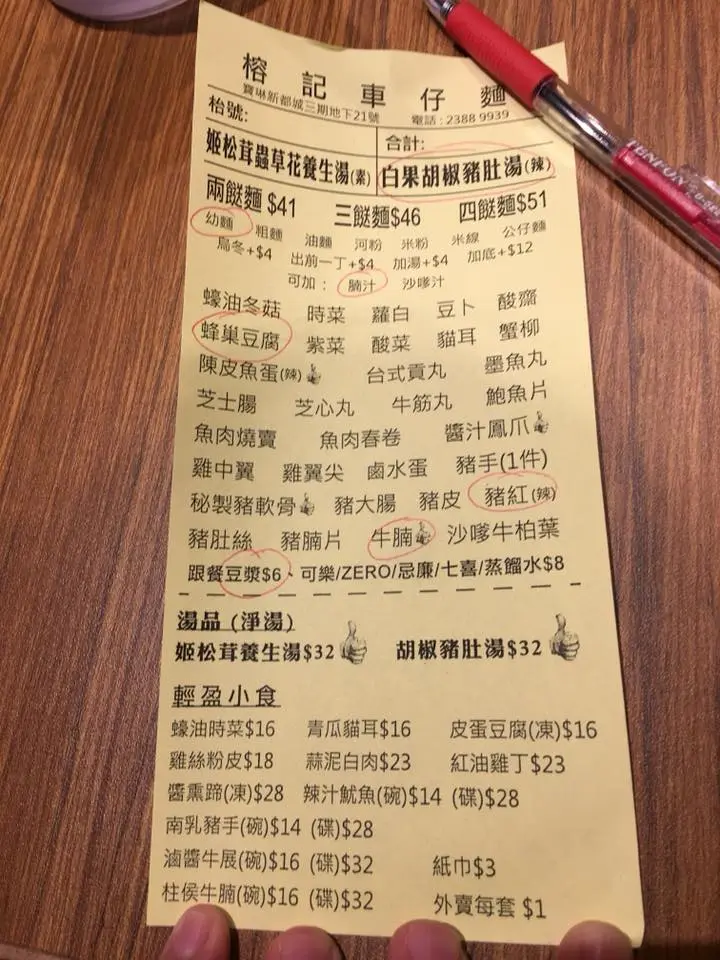 榕記車仔麵
寶琳新都城三期地下21號 電話：2388 9939
枱號: 合計:
姬松茸蟲草花養生湯(素) 白果胡椒豬肚湯(辣)
兩餸麵 $41 三餸麵$46 四餸麵$51
幼麵 粗麵 油麵 河粉 米粉 米線 公仔麵
烏冬+$4 出前一丁+$4 加湯+$4 加底+$12
可加： 腩汁 沙嗲汁
蠔油冬菇 時菜 蘿白 豆卜 酸齋
蜂巢豆腐 紫菜 酸菜 貓耳 蟹柳
陳皮魚蛋(辣) 台式貢丸 墨魚丸
芝士腸 芝心丸 牛筋丸 鮑魚片
魚肉燒賣 魚肉春卷 醬汁鳳爪
雞中翼 雞翼尖 鹵水蛋 豬手(1件)
秘製豬軟骨 豬大腸 豬皮 豬紅(辣)
豬肚絲 豬腩片 牛腩 沙嗲牛柏葉
跟餐豆漿$6、可樂/ZERO/忌廉/七喜/蒸餾水$8
湯品 (淨湯)
姬松茸養生湯$32 胡椒豬肚湯$32
輕盈小食
蠔油時菜$16 青瓜貓耳$16 皮蛋豆腐(凍)$16
雞絲粉皮$18 蒜泥白肉$23 紅油雞丁$23
醬熏蹄(凍)$28 辣汁魷魚(碗)$14 (碟)$28
南乳豬手(碗)$14 (碟)$28
滷醬牛展(碗)$16 (碟)$32 紙巾$3
柱侯牛腩(碗)$16 (碟)$32 外賣每套 $1